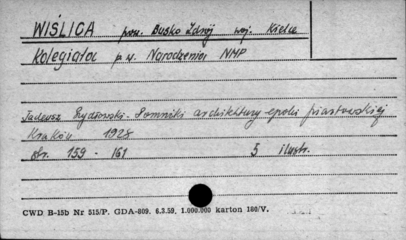 WIŚLICA pow. Busko Zdrój woj. Kielce
Kolegiata p.w. Narodzenia NMP
Tadeusz Szydłowski - Pomniki architektury epoki piastowskiej
Kraków 1928
str. 159 - 161 5 ilustr.
CWD B-15b Nr 515/P. GDA-809. 6.3.59. 1.000.000 karton 180/V.